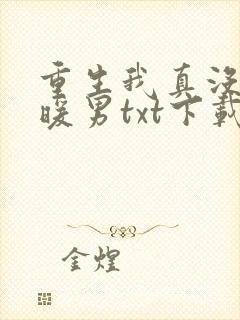 重生我真没
暖男txt下载
金煌